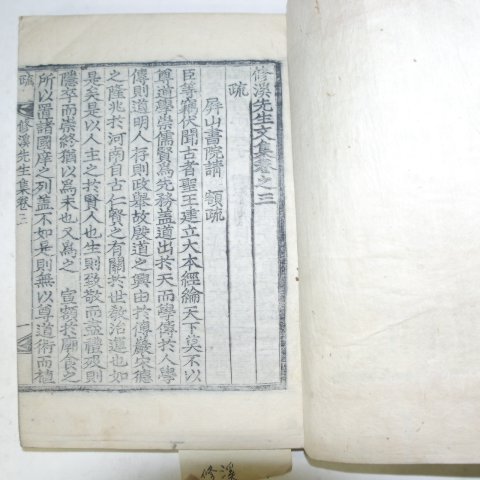 修溪先生文集卷之三
疏
屏山書院請 額疏
臣等竊伏聞古者聖王建立大本經綸天下莫不以
尊道學崇儒賢爲先務盖道出於天而學傳於人學
傳則道明人存則政擧故殷道之興由於傅巖宋德
之隆兆於河南自古仁賢之有關於世敎治運也如
是矣是以人主之於賢人也生則致敬而盡禮歿則
隱卒而崇終猶以爲未也又爲之 宣額於廟食之
所以置諸國庠之列盖不如是則無以尊道術而植
疏 修溪先生集卷三 一
修溪